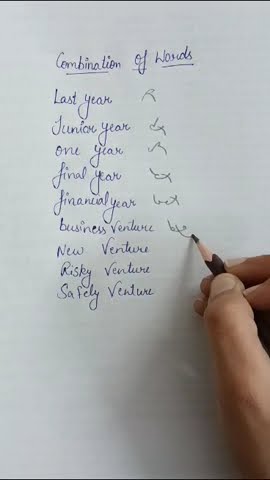 Combination of Words
Last year
Junior year
one year
final year
financial year
business venture
New Venture
Risky Venture
Safely Venture